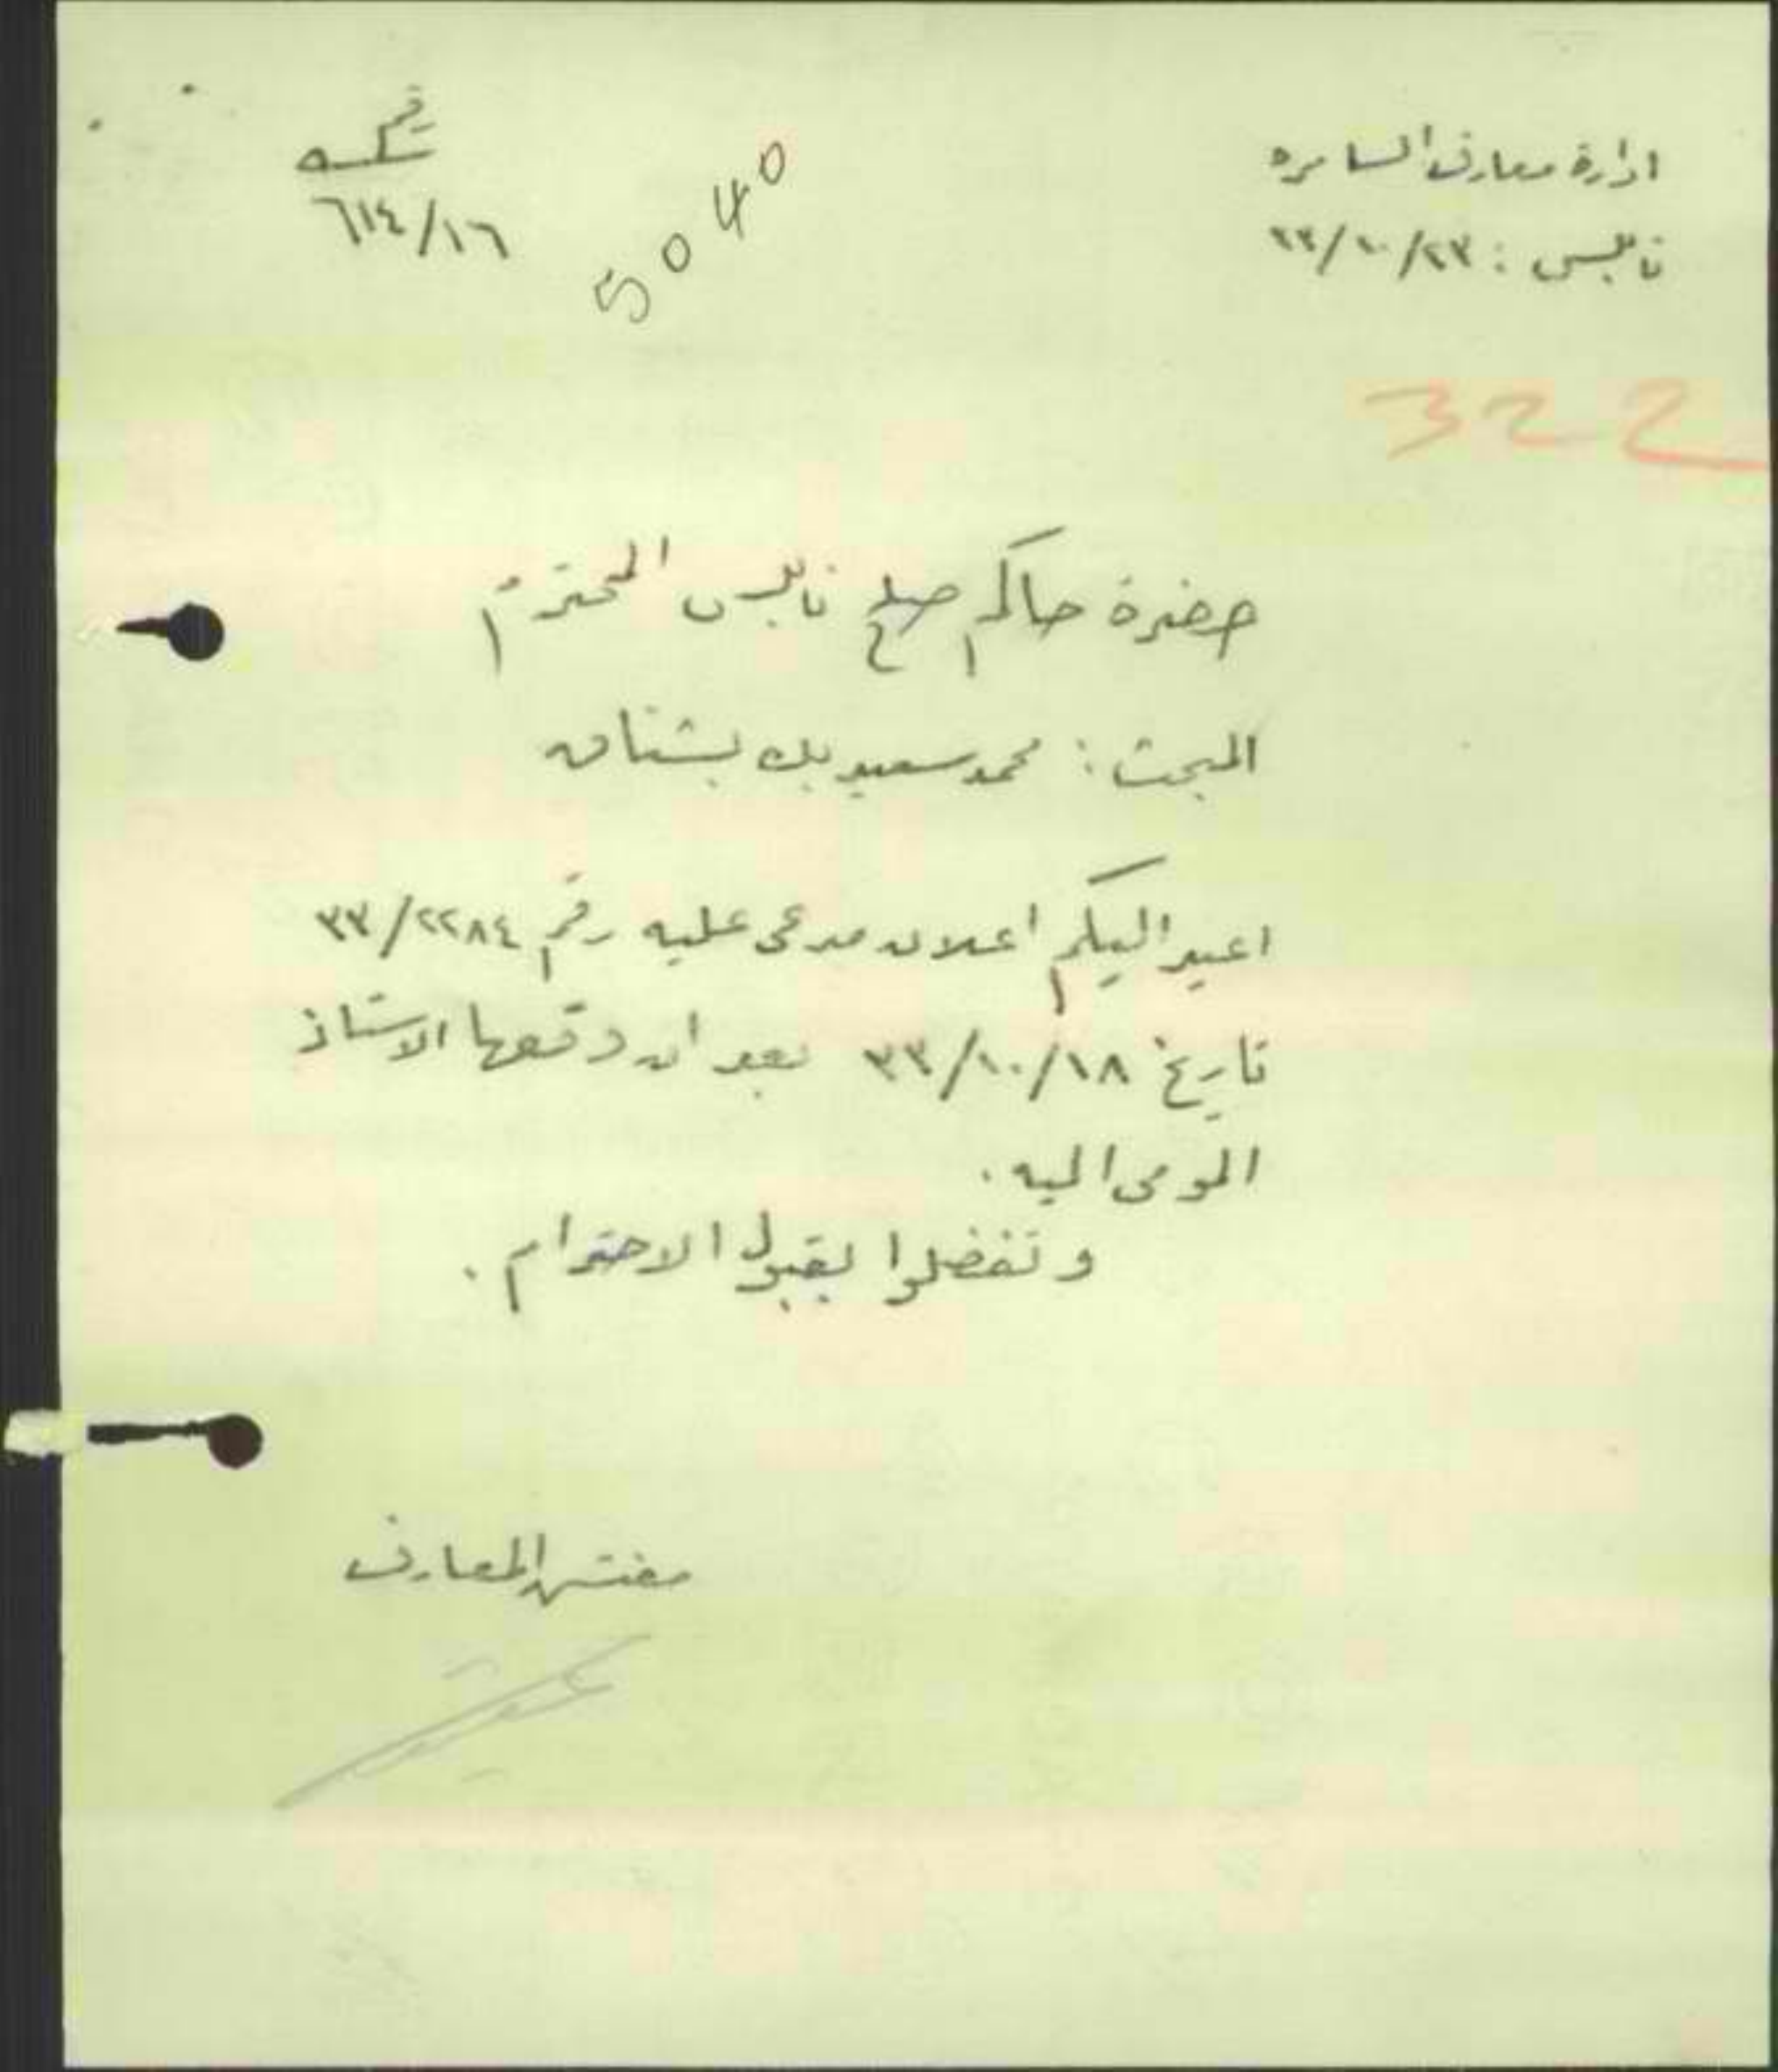 ادارة معارف السامره
نابلس : ٢٣/١٠/٣٣
رقم
٦١٤/١٦
5040
322
حضرة حاكم صلح نابلس المحترم
المبحث : محمد سعيد بك بشناق
اعيد اليكم اعلان مدعى عليه رقم ٢٢٨٤/٣٣
تاريخ ١٨/١٠/٣٣ بعد ان وقعها الاستاذ
المومى اليه .
وتفضلوا بقبول الاحترام .
مفتش المعارف